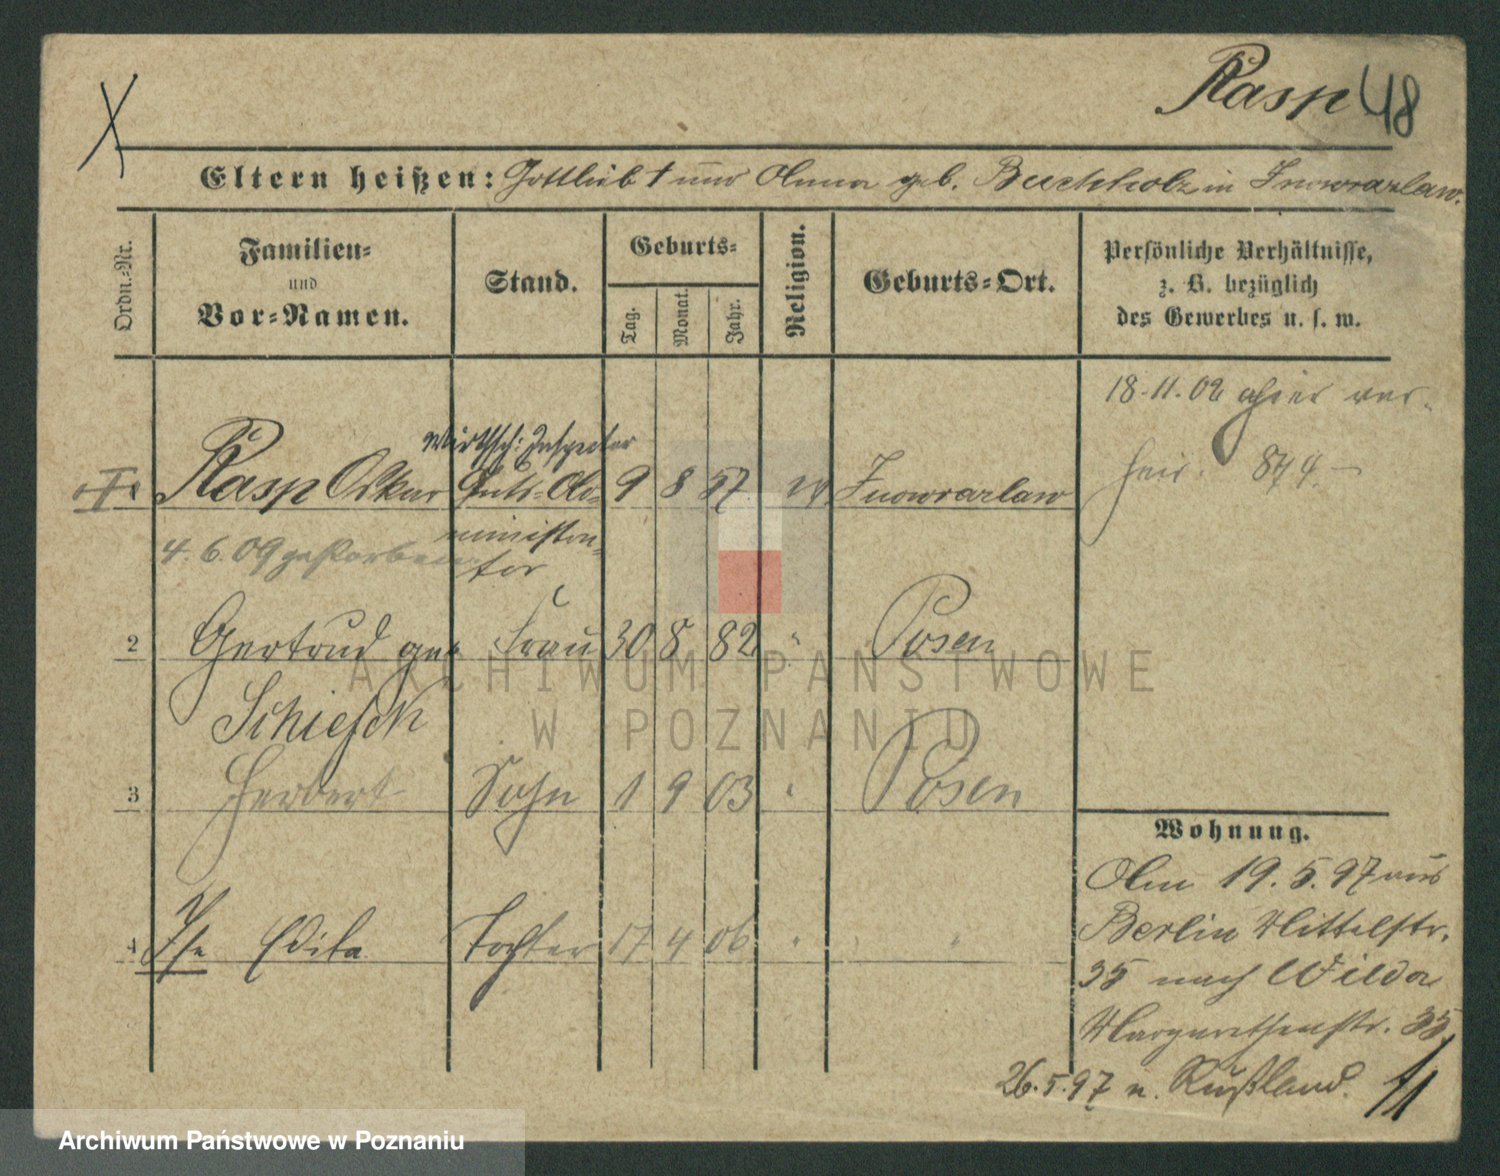 Rasp 48
Eltern heißen: Gottlieb † und Anna geb. Buchholz in Inowrazlaw.
Ordn.-Nr.
Familien-
und
Vor-Namen.
Stand.
Geburts-
Tag.
Monat.
Jahr.
Religion.
Geburts-Ort.
Persönliche Verhältnisse,
z. B. bezüglich
des Gewerbes u. s. w.
18.11.02 hier ver-
heir. 874
Wirthsch: Inspector
Rasp Oskar Guts-Ad- 9 8 57 ev Inowrazlaw
ministra-
4.6.09 gestorben tor
2 Gertrud geb Frau 30 8 82 " Posen
Schiefek
3 Herbert Sohn 1 9 03 " Posen
4 Ilse Edita Tochter 17 4 06 " "
Wohnung.
Am 19.5.97 aus
Berlin Mittelstr.
35 nach Wilda
Margarethenstr. 35
26.5.97 n. Rußland.
ARCHIWUM PAŃSTWOWE
W POZNANIU
Archiwum Państwowe w Poznaniu